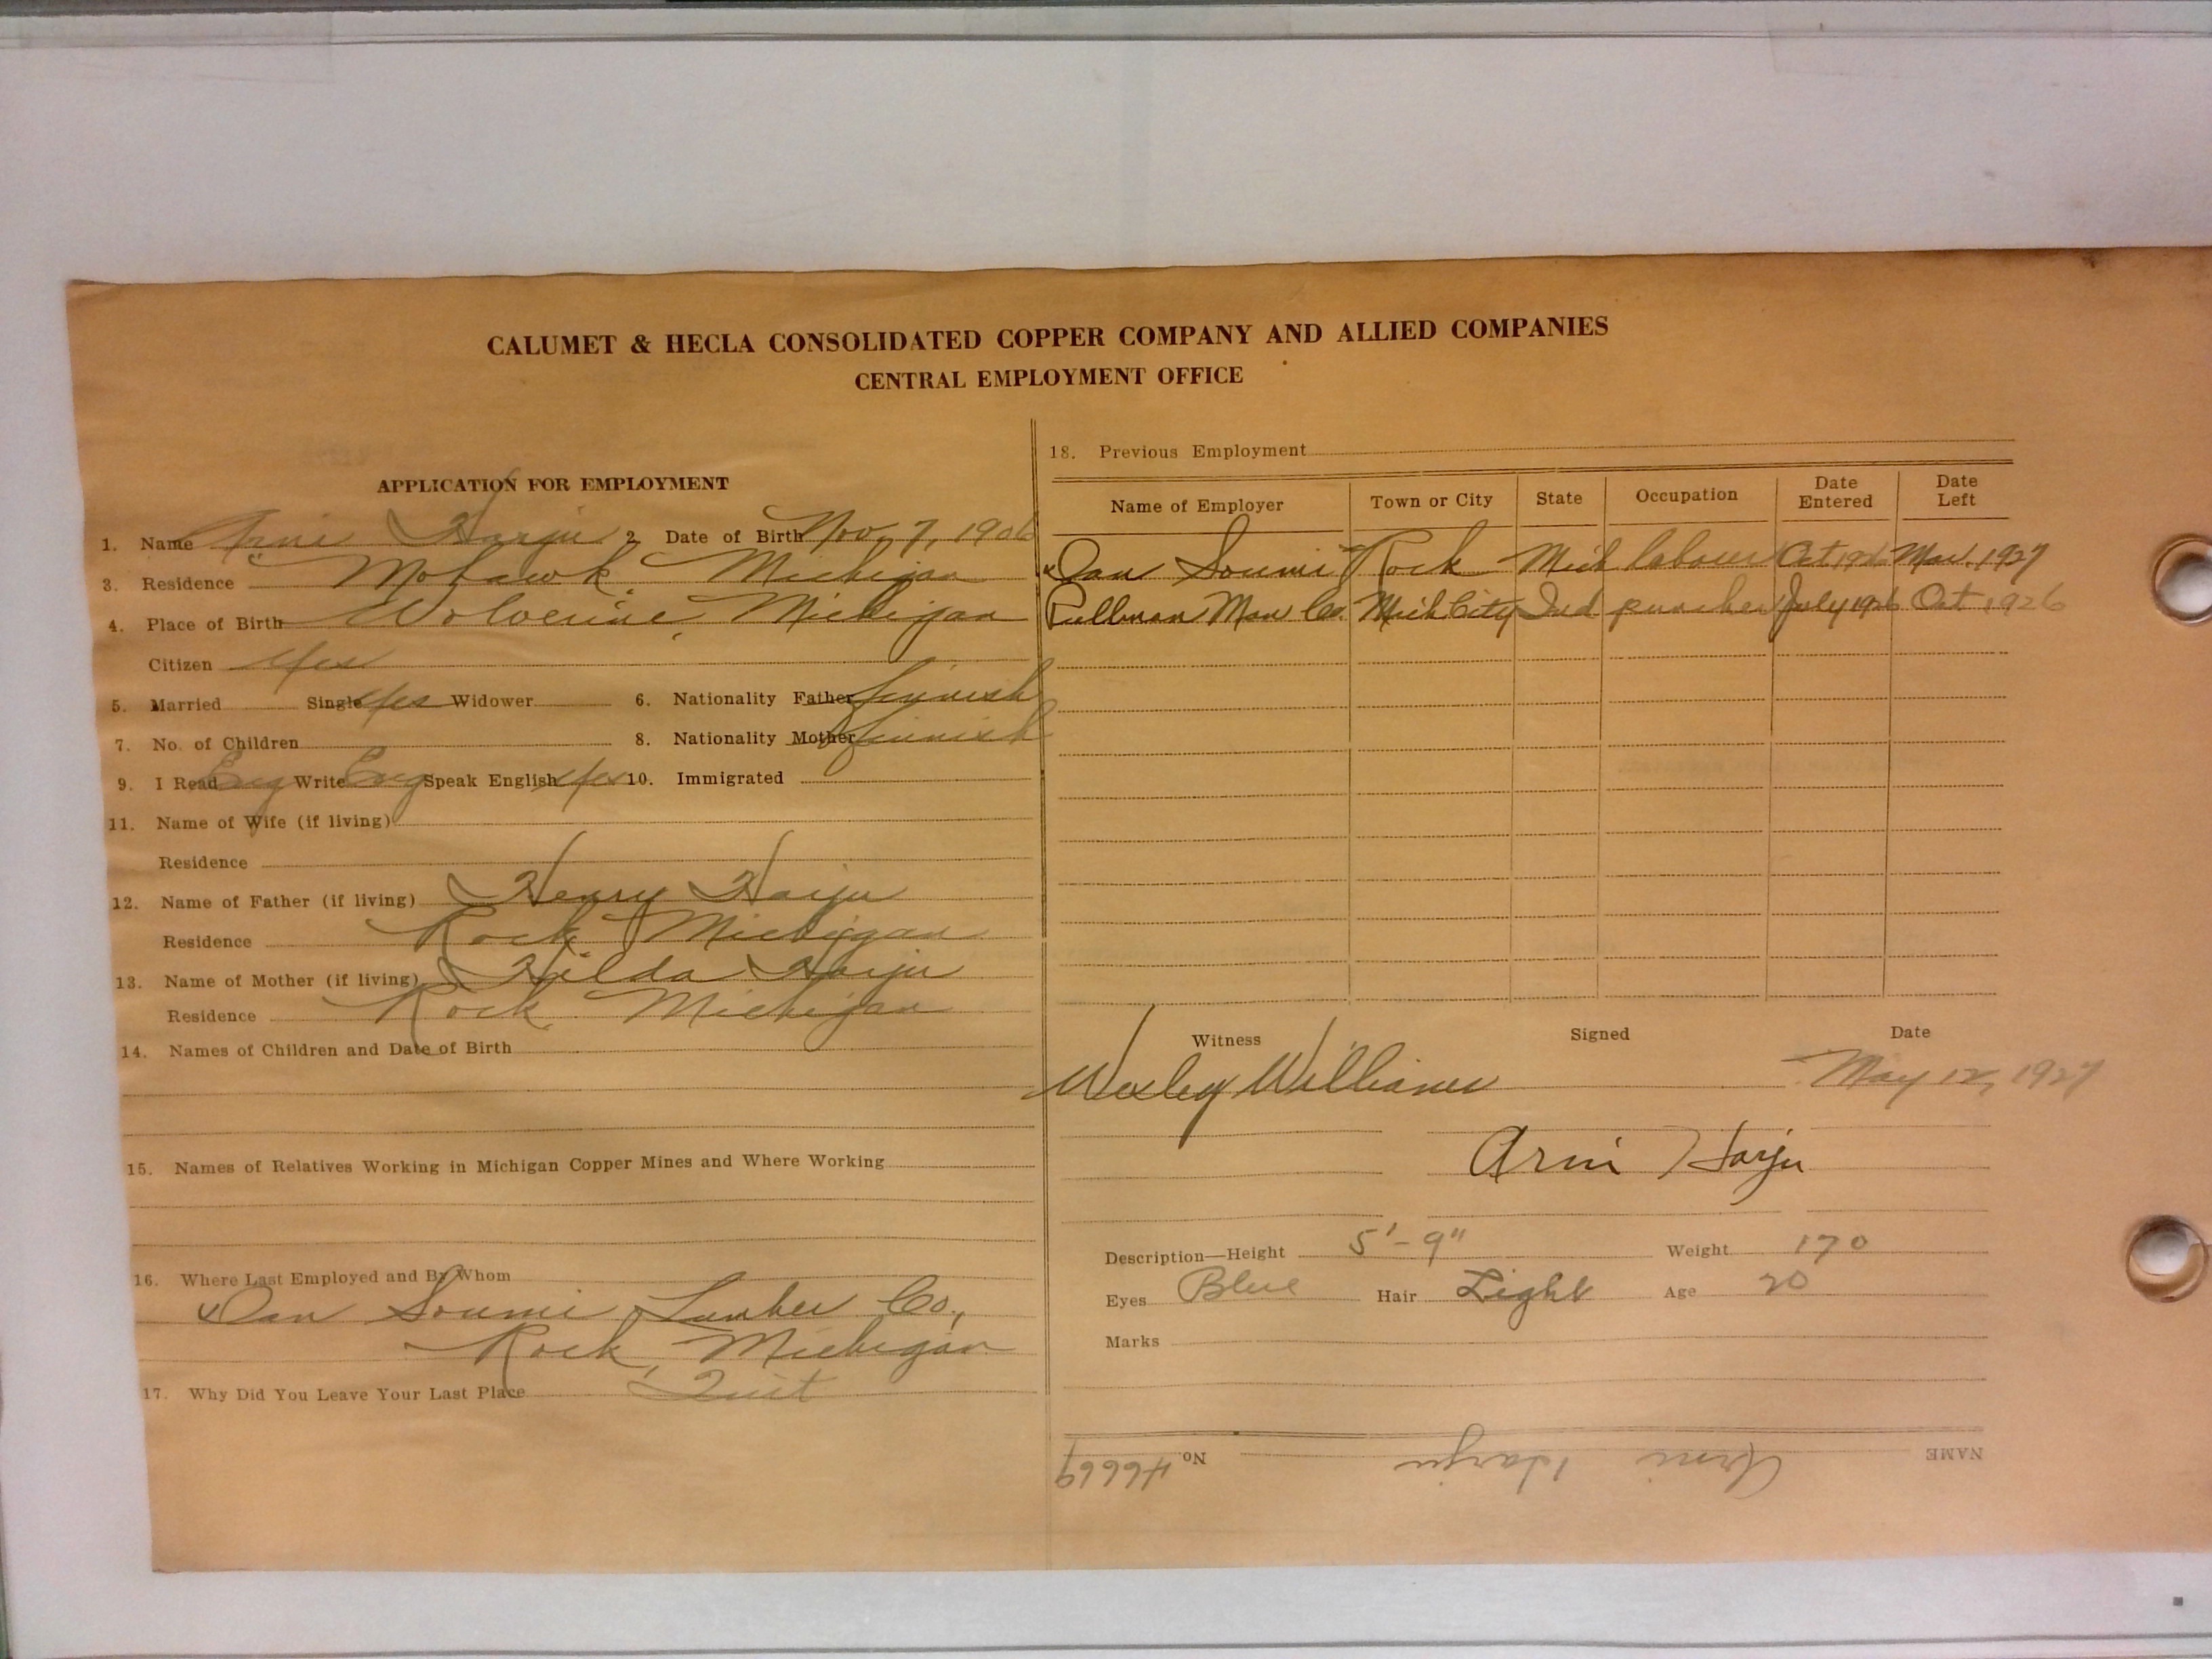 CALUMET & HECLA CONSOLIDATED COPPER COMPANY AND ALLIED COMPANIES
CENTRAL EMPLOYMENT OFFICE
APPLICATION FOR EMPLOYMENT
1. Name Arni Harju 2. Date of Birth Nov. 7, 1906
3. Residence Mohawk, Michigan
4. Place of Birth Wolverine, Michigan
Citizen Yes
5. Married Single Yes Widower 6. Nationality Father Finnish
7. No. of Children 8. Nationality Mother Finnish
9. I Read Eng Write Eng Speak English Yes 10. Immigrated
11. Name of Wife (if living)
Residence
12. Name of Father (if living) Henry Harju
Residence Rock, Michigan
13. Name of Mother (if living) Hilda Harju
Residence Rock, Michigan
14. Names of Children and Date of Birth
15. Names of Relatives Working in Michigan Copper Mines and Where Working
16. Where Last Employed and By Whom
Dan Soumi Lumber Co.,
Rock, Michigan
17. Why Did You Leave Your Last Place Quit
18. Previous Employment
Name of Employer Town or City State Occupation Date Entered Date Left
Dan Soumi Rock Mich labour Oct 1926 Mar. 1927
Pullman Man Co. Mich City Ind puncher July 1926 Oct 1926
Witness Signed Date
Wesley Williams May 12, 1927
Arni Harju
Description—Height 5'-9" Weight 170
Eyes Blue Hair Light Age 20
Marks
NAME Arni Harju No. 46669